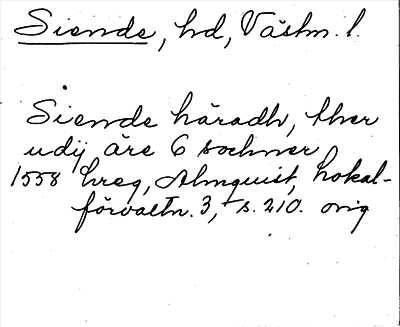 Siende, hd, Västm. l.
Siende häradh, ther
udij äre 6 sochner
1558 hreg, Almquist, Lokal-
förvaltn. 3, s. 210. orig